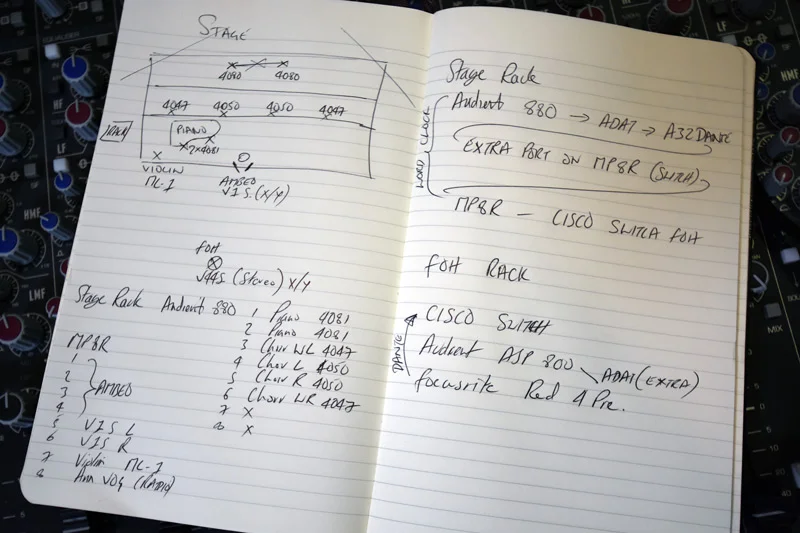 STAGE
4080 4080
4047 4050 4050 4047
PIANO
2x4081
VIOLIN
MC-1
AMBEO
V1S. (X/Y)
FOH
(Stereo) X/Y
Stage Rack Audient 880
1 Piano 4081
2 Piano 4081
3 Choir WL 4047
4 Choir L 4050
5 Choir R 4050
6 Choir WR 4047
7 X
8 X
MP8R
1
2
3
4
AMBEO
5 V1S L
6 V1S R
7 Violin MC-1
8 Ann VOG (RADIO)
Stage Rack
WORD CLOCK
Audient 880 → ADAT → A32 DANTE
EXTRA PORT ON MP8R (SWITCH)
MP8R - CISCO SWITCH FOH
FOH RACK
DANTE
CISCO SWITCH
Audient ASP 800
ADAT (EXTRA)
Focusrite Red 4 Pre.